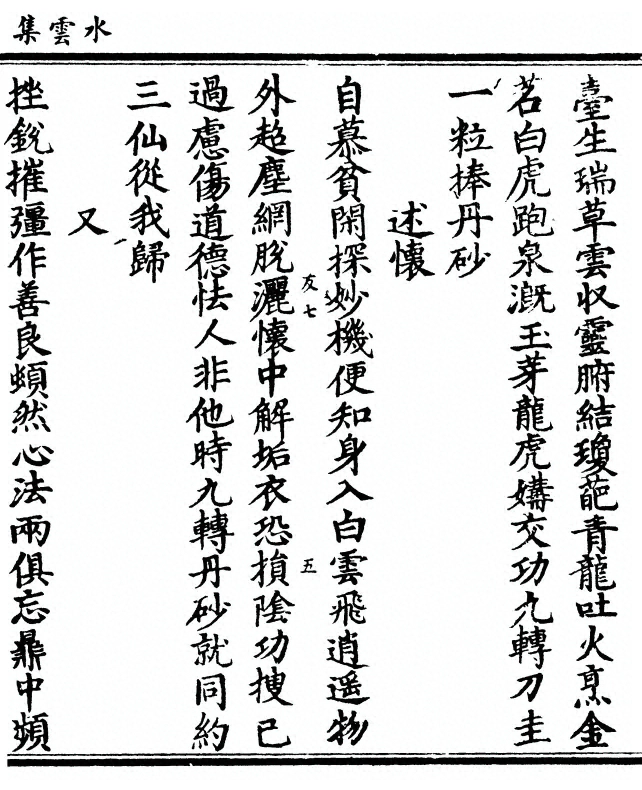 水雲集
臺生瑞草雲収靈腑結瓊葩青龍吐火烹金
茗白虎跑泉溉玉芽龍虎媾交功九轉刀圭
一粒捧丹砂
述懷
自慕貧閑探妙機便知身入白雲飛逍遥物
友七
五
外超塵網脫灑懷中解垢衣恐損陰功搜己
過慮傷道德怯人非他時九轉丹砂就同約
三仙從我歸
又
挫銳摧彊作善良頻然心法兩俱忘鼎中頻